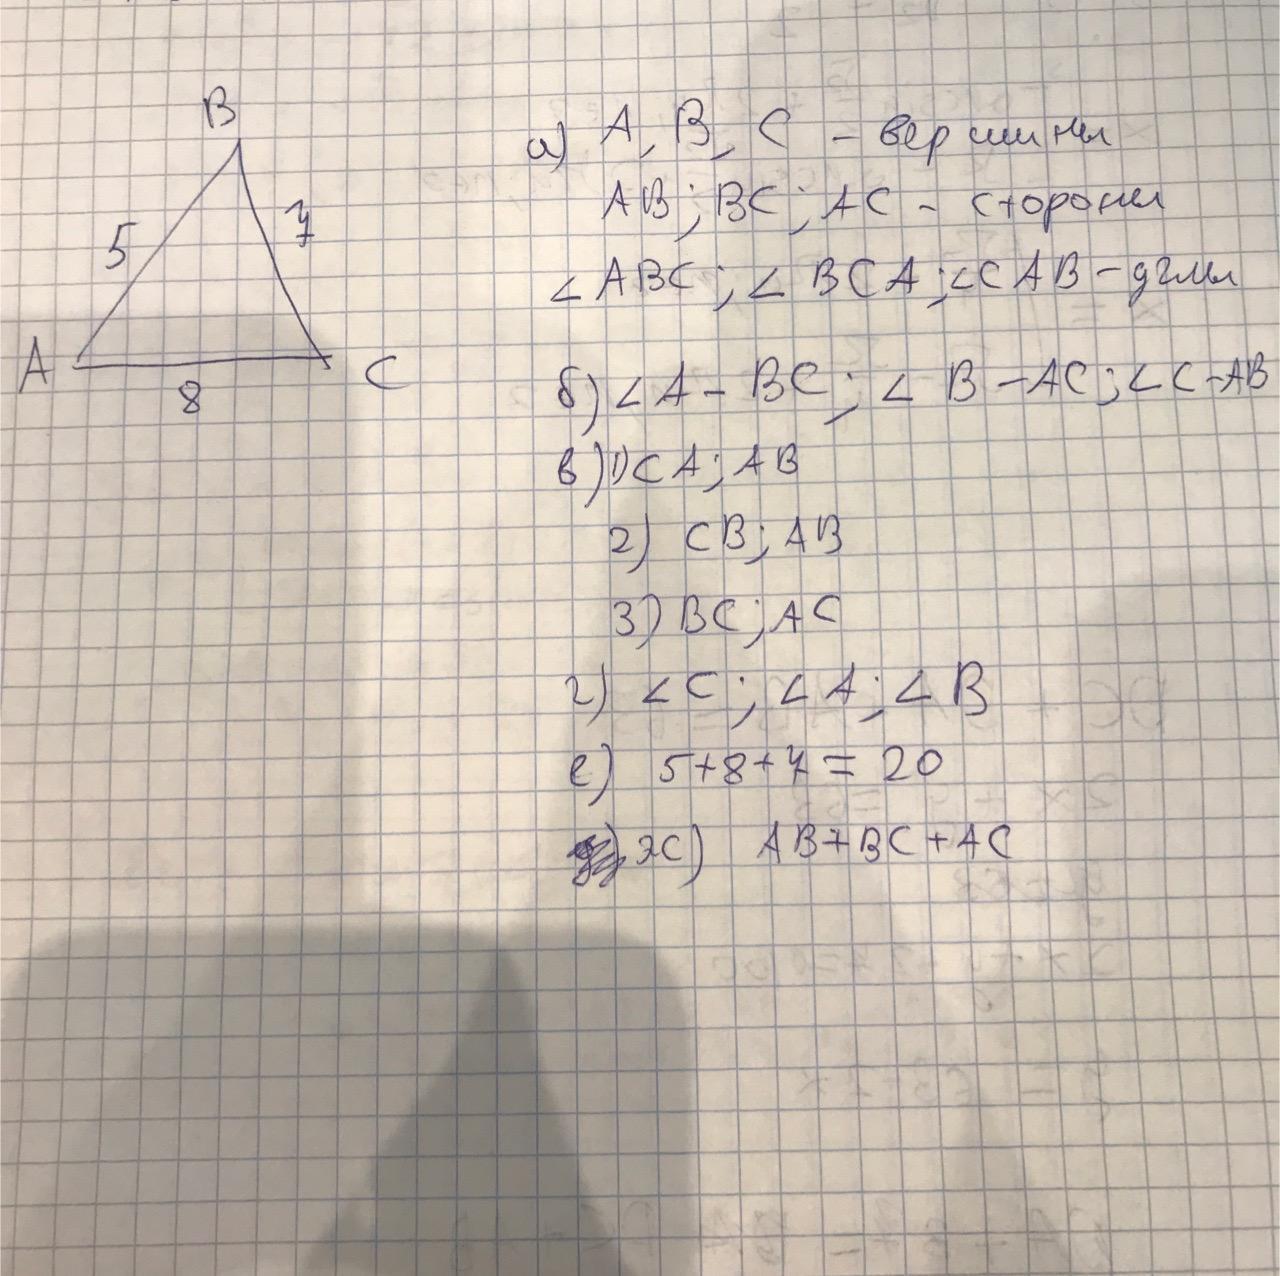 B
5
7
A
C
8
а) A, B, C - вершины
AB; BC; AC - стороны
∠ABC; ∠BCA; ∠CAB - углы
б) ∠A - BC; ∠B - AC; ∠C - AB
в) 1) CA; AB
2) CB; AB
3) BC; AC
г) ∠C; ∠A; ∠B
е) 5+8+7=20
ж) AB+BC+AC